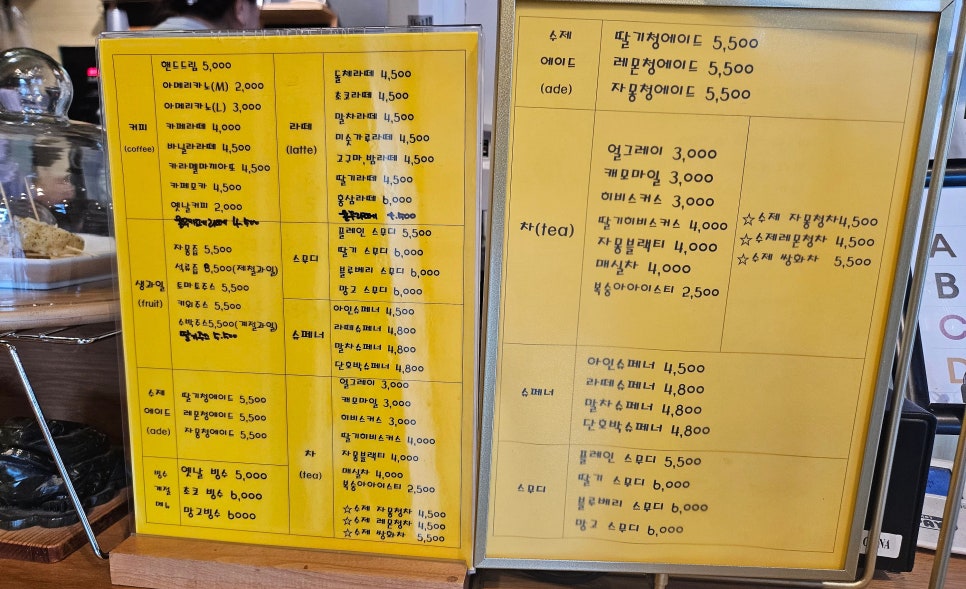 커피
(coffee)
핸드드림 5,000
아메리카노(M) 2,000
아메리카노(L) 3,000
카페라떼 4,000
바닐라라떼 4,500
카라멜마끼아또 4,500
카페모카 4,500
옛날커피 2,000
생과일
(fruit)
자몽쥽 5,500
석류쥽 8,500(제철과일)
토마토주스 5,500
키위주스 5,500
수박주스5,500(계절과일)
딸기주스 5.500
수제
에이드
(ade)
딸기청에이드 5,500
레몬청에이드 5,500
자몽청에이드 5,500
빙수
계절
메뉴
옛날 빙수 5,000
초코 빙수 6,000
망고빙수 6000
라떼
(latte)
돌체라떼 4,500
초코라떼 4,500
말차라떼 4,500
미숫가루라떼 4,500
고구마,밤라떼 4,500
딸기라떼 4,500
홍삼라떼 6,000
4.500
스무디
플레인 스무디 5,500
딸기 스무디 6,000
블루베리 스무디 6,000
망고 스무디 6,000
슈페너
아인슈페너 4,500
라떼슈페너 4,800
말차슈페너 4,800
단호박슈페너 4,800
차
(tea)
얼그레이 3,000
캐모마일 3,000
히비스커스 3,000
딸기히비스커스 4,000
자몽블랙티 4,000
매실차 4,000
복숭아아이스티 2,500
☆수제 자몽청차 4,500
☆수제 레몬청차 4,500
☆수제 쌍화차 5,500
수제
에이드
(ade)
딸기청에이드 5,500
레몬청에이드 5,500
자몽청에이드 5,500
차(tea)
얼그레이 3,000
캐모마일 3,000
히비스커스 3,000
딸기히비스커스 4,000
자몽블랙티 4,000
매실차 4,000
복숭아아이스티 2,500
☆수제 자몽청차4,500
☆수제레몬청차 4,500
☆수제 쌍화차 5,500
슈페너
아인슈페너 4,500
라떼슈페너 4,800
말차슈페너 4,800
단호박슈페너 4,800
스무디
플레인 스무디 5,500
딸기 스무디 6,000
블루베리 스무디 6,000
망고 스무디 6,000
A
B
C
D